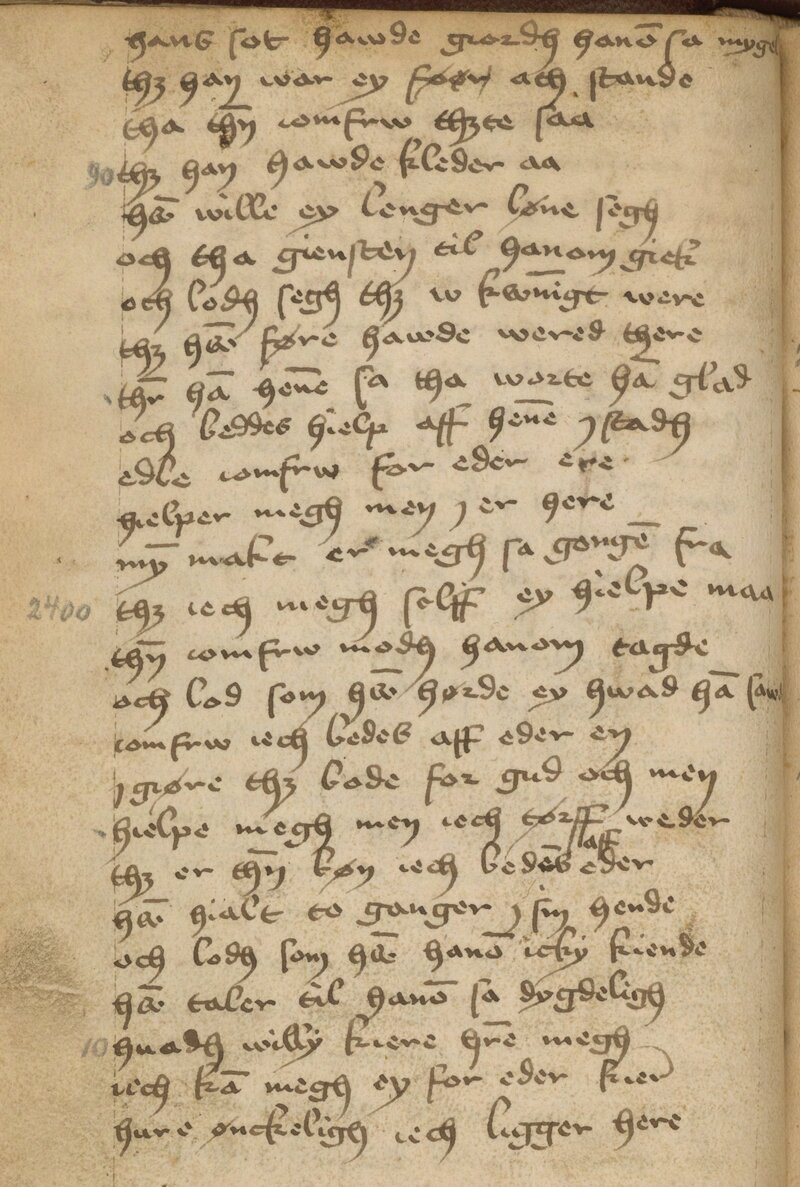 hans sot hawde giordh hanō sa myge
thꝫ han war ey føør ath stande
tha thn̄ iomfrw thꝫte saa
90 thꝫ han hawde kleder aa
hw̄ wille ey lenger løne segh
och tha giensten til hanom giek
och lodh segh thꝫ w kwn̄igt were
thꝫ hw̄ føre hawde wered there
thr̄ hā hen̄e sa tha worte hā glad
och beddes hielp aff hen̄e ȷ stadh
edle iomfrw for eder ere
hielper megh men ȷ er here
my̅ makt er megh sa gongē fra
2400 thꝫ iech megh selff ey hielpe maa
thn̄ iomfrw modh hanom tagde
och lod som hw̄ hørde ey hwad hā saw
iomfrw iech bedes aff eder en
ȷ giøre thꝫ bode for gud och men
hielpe megh men iech tørff weder
thꝫ er thn̄ bøn iech bedēs aff eder
hw̄ hialt to ganger ȷ sin hende
och lodh som hw̄ hanō icky kiende
hw̄ taler til hanō sa dygdeligh
10 huadh willy kiere hr̄e megh
iech kā megh ey for eder kier
hure ønckeligh iech ligger here